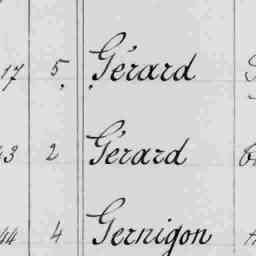 17 5 Gérard
43 2 Gérard
44 4 Gernigon